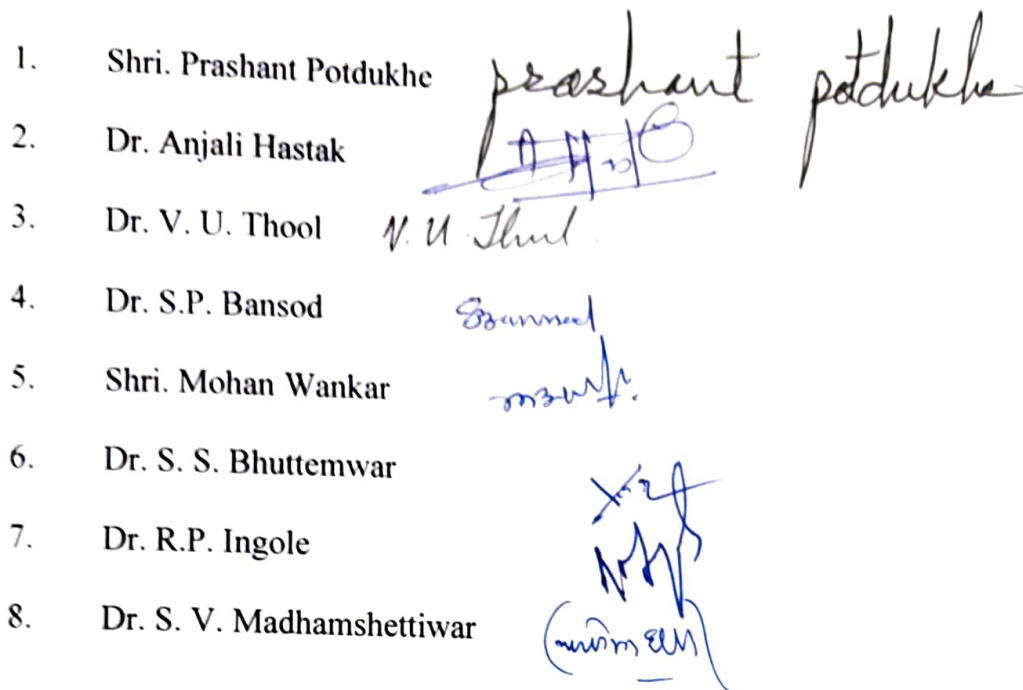 1. Shri. Prashant Potdukhe prashant potdukhe
2. Dr. Anjali Hastak
3. Dr. V. U. Thool V. U Thul
4. Dr. S.P. Bansod
5. Shri. Mohan Wankar
6. Dr. S. S. Bhuttemwar
7. Dr. R.P. Ingole
8. Dr. S. V. Madhamshettiwar